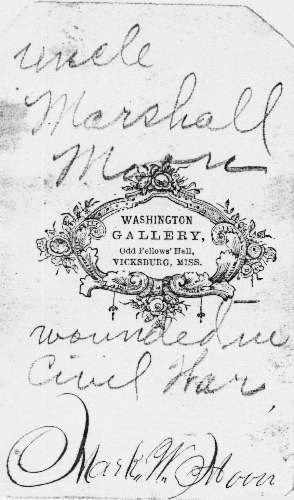 uncle
Marshall
Moon
WASHINGTON
GALLERY,
Odd Fellows' Hall,
VICKSBURG, MISS.
wounded in
Civil War
Mark. W. Moon